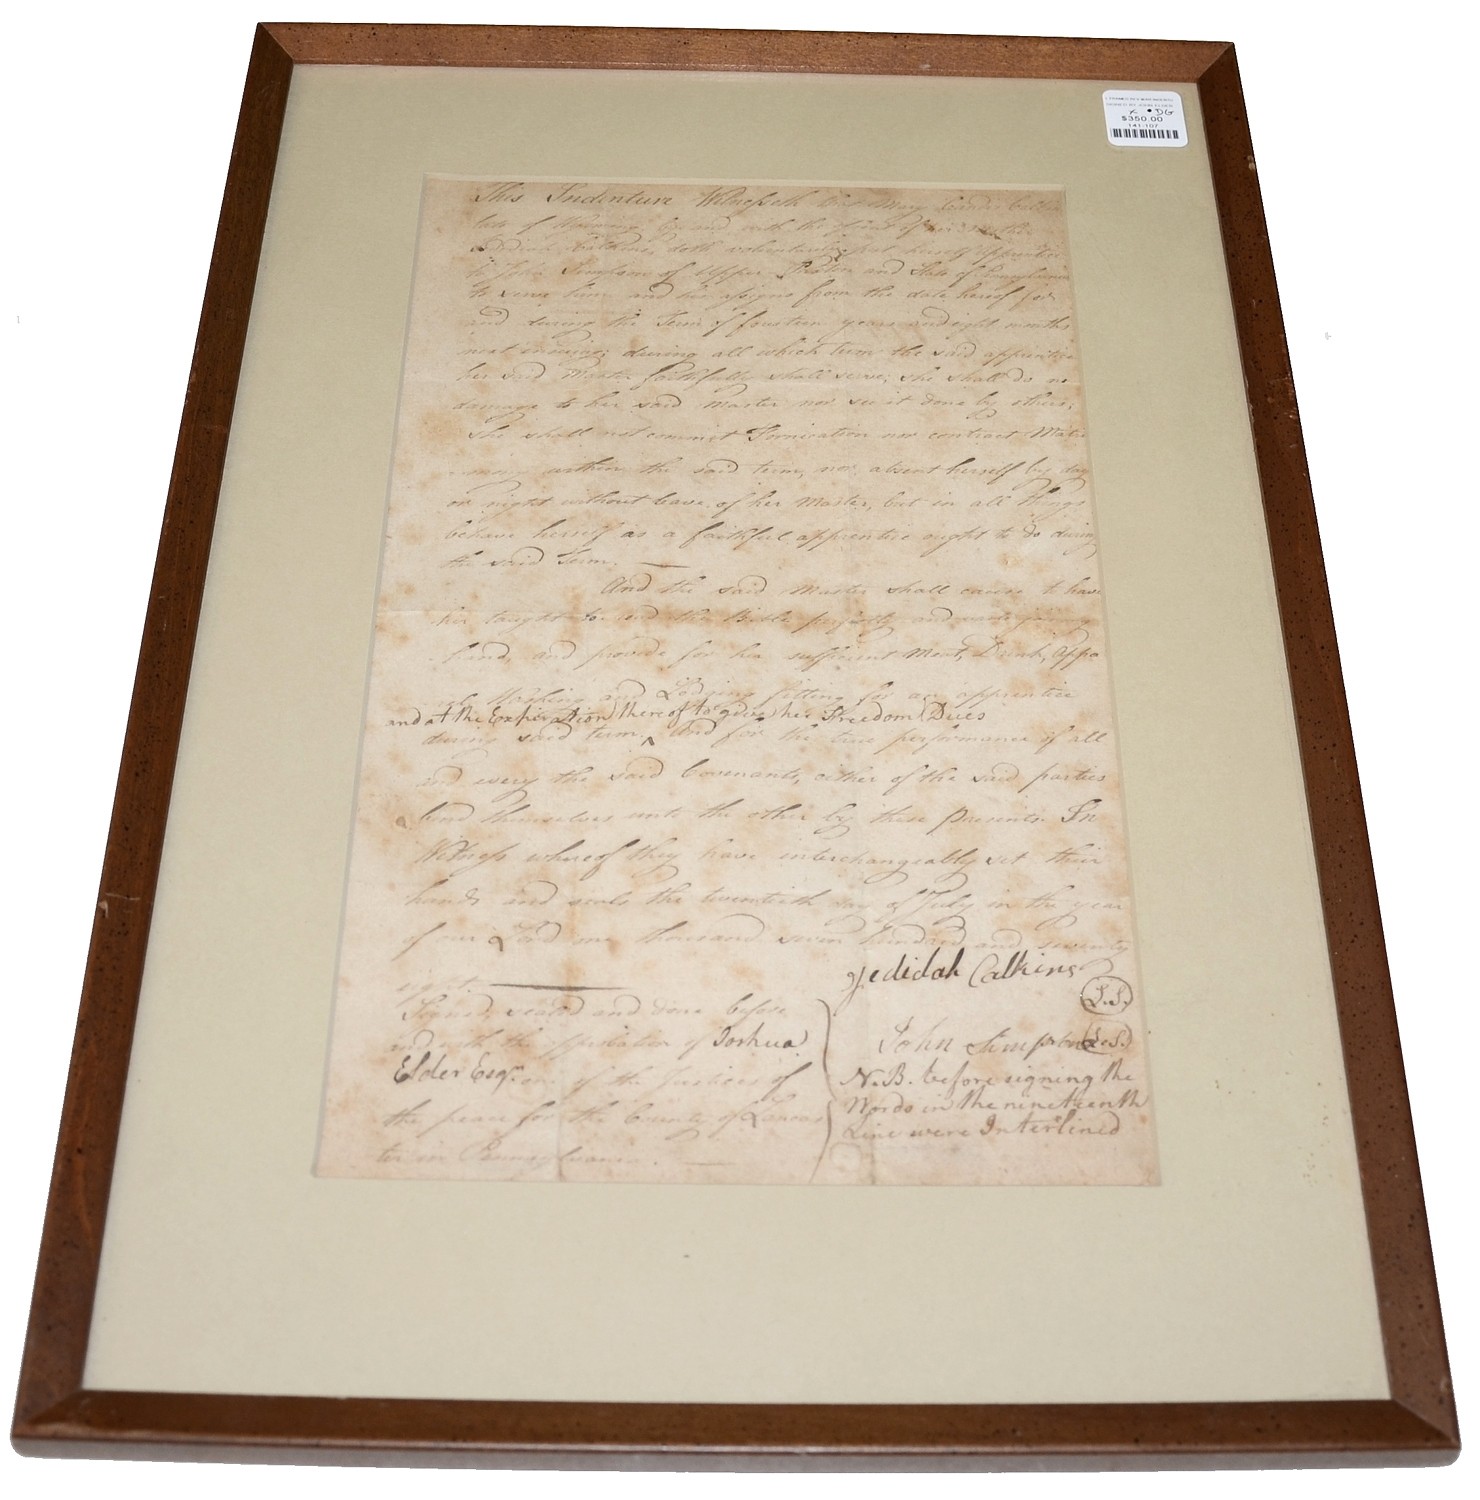 $350.00
141-107
This Indenture Witnesseth that Mary
late of Wyoming by and with the of her Mother
doth voluntarily put herself Apprentice
to John Simpson of Upper Paxton and State of Pennsylvania
to serve him and his assigns from the date hereof for
and during the Term of fourteen years and eight months
next ensuing; during all which term the said apprentice
her said Master faithfully shall serve; she shall do no
damage to her said Master nor see it done by others;
She shall not commit Fornication nor contract Matri
mony within the said term, nor absent herself by day
or night without leave of her Master, but in all things
behave herself as a faithful apprentice ought to do during
the said Term. —
And the said Master shall cause to have
her taught to read the Bible perfectly and
hand, and provide for her sufficient Meat, Drink, Appa
rel Washing and Lodging fitting for an apprentice
and at the Expiration thereof to give her Freedom Dues
during said term, ^ And for the true performance of all
and every the said Covenants, either of the said parties
bind themselves unto the other by these Presents. In
Witness whereof they have interchangeably set their
hands and seals the twentieth day of July in the year
of our Lord one thousand seven hundred and seventy
eight. —
Jedidah Calkins
L.S.
Signed, sealed and done before
and with the of Joshua
Elder Esqr. one of the Justices of
the peace for the County of Lancas
ter in Pennsylvania. —
John Simpson L.S.
N.B. before signing the
Words in the nineteenth
Line were Interlined